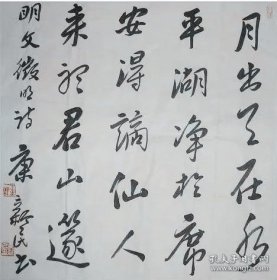 月出天在水
平湖净於席
安得谪仙人
来听君山笛
明文徵明诗 康 书